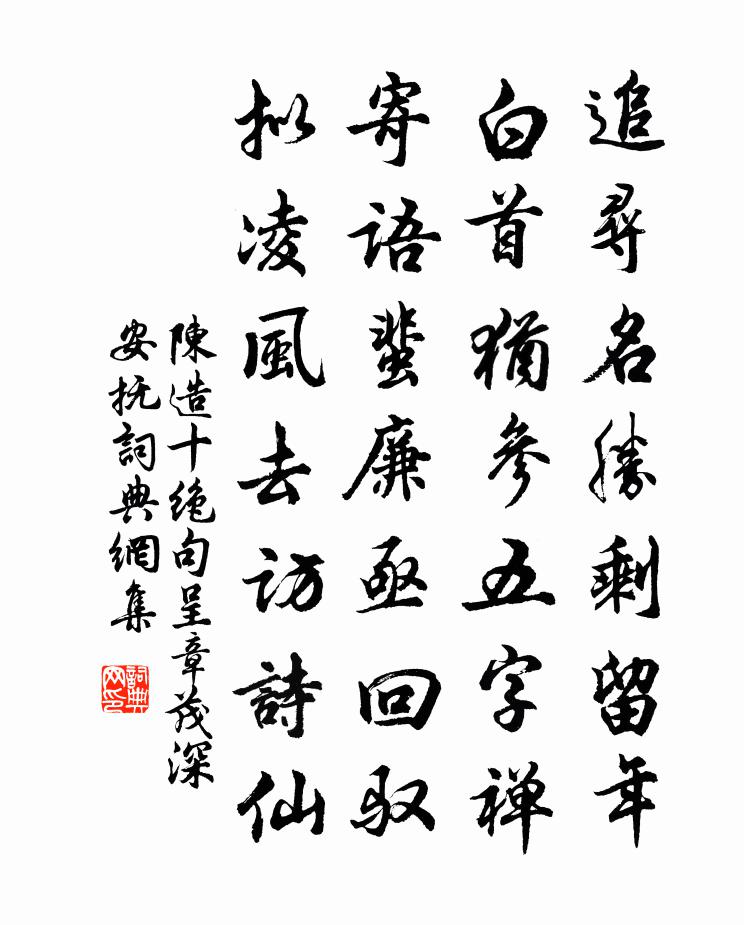 追尋名勝剩留年
白首猶參五字禅
寄語蜚廉亟回驭
拟凌風去访詩仙
陳造十绝句呈章茂深
安抚詞典網集
詞典
网印